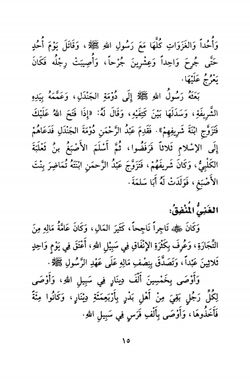 وَأُحُداً وَالغَزَوَاتِ كُلَّهَا مَعَ رَسُولِ اللهِ ﷺ، وَقَاتَلَ يَوْمَ أُحُدٍ
حَتَّى جُرِحَ وَاحِداً وَعِشْرِينَ جُرْحاً، وَأُصِيبَتْ رِجْلُهُ فَكَانَ
يَعْرُجُ عَلَيْهَا.
بَعَثَهُ رَسُولُ اللهِ ﷺ إِلَى دُوْمَةِ الجَنْدَلِ، وَعَمَّمَهُ بِيَدِهِ
الشَّرِيفَةِ، وَسَدَلَهَا بَيْنَ كَتِفَيْهِ، وَقَالَ لَهُ: «إِذَا فَتَحَ اللهُ عَلَيْكَ
فَتَزَوَّجْ بِنْتَ شَرِيفِهِمْ». فَقَدِمَ عَبْدُ الرَّحْمَنِ دُوْمَةَ الجَنْدَلِ فَدَعَاهُمْ
إِلَى الإِسْلَامِ ثَلَاثاً فَرَفَضُوا، ثُمَّ أَسْلَمَ الأَصْبَغُ بْنُ ثَعْلَبَةَ
الكَلْبِيُّ، وَكَانَ شَرِيفَهُمْ، فَتَزَوَّجَ عَبْدُ الرَّحْمَنِ ابْنَتَهُ تُمَاضِرَ بِنْتَ
الأَصْبَغِ، فَوَلَدَتْ لَهُ أَبَا سَلَمَةَ.
الغَنِيُّ المُنْفِقُ:
وَكَانَ تَاجِراً نَاجِحاً، كَثِيرَ المَالِ، وَكَانَ عَامَّةُ مَالِهِ مِنَ
التِّجَارَةِ، وَعُرِفَ بِكَثْرَةِ الإِنْفَاقِ فِي سَبِيلِ اللهِ، أَعْتَقَ فِي يَوْمٍ وَاحِدٍ
ثَلَاثِينَ عَبْداً، وَتَصَدَّقَ بِنِصْفِ مَالِهِ عَلَى عَهْدِ الرَّسُولِ ﷺ.
وَأَوْصَى بِخَمْسِينَ أَلْفَ دِينَارٍ فِي سَبِيلِ اللهِ، وَأَوْصَى
لِكُلِّ رَجُلٍ بَقِيَ مِنْ أَهْلِ بَدْرٍ بِأَرْبَعِمِئَةِ دِينَارٍ، وَكَانُوا مِئَةً
فَأَخَذُوهَا، وَأَوْصَى بِأَلْفِ فَرَسٍ فِي سَبِيلِ اللهِ.
١٥